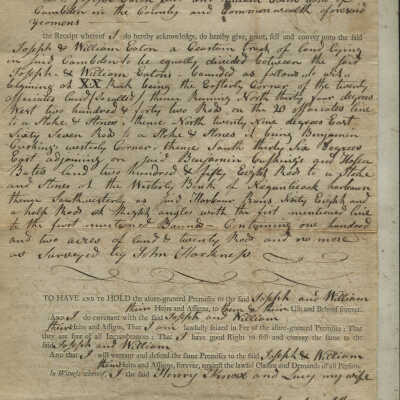 Cambden in the County and Commonwealth aforesaid
yeomans
the Receipt whereof I do hereby acknowledge, do hereby give, grant, sell and convey unto the said
Joseph & William Eaton a Ceartain tract of land lying
in said Cambden to be equally divided between the said
Joseph & William Eatons - bounded as follows to wit.
begining at XX Rock being the Easterly Corner of the twenty
associates land, so called, thence Runing North thirty four degrees
West two hundred & forty two Rod on the 20 associates line
to a Stake & Stones, thence North twenty Nine degrees East
Sixty Seven Rod to a Stake & Stones it being Benjamin
Cushings westerly Corner, thence South thirty Six degrees
East adjoining on said Benjamin Cushings and Hosea
Bates land two hundred & fifty Eight Rod to a Stake
and Stones at the Westerly Bank of harbour
thence Southwesterly as said Harbour Runs Sixty Eight and
a half Rods at Right angles with the first mentioned line
to the first mentioned Bounds - Containing one hundred
and two acres of land & twenty Rod and no more
as Surveyed by John Harkness
TO HAVE AND TO HOLD the afore-granted Premises to the said Joseph and William
their Heirs and Assigns, to them & their Use and Behoof forever.
And I do covenant with the said Joseph and William
their Heirs and Assigns, That I am lawfully seized in Fee of the afore-granted Premises: That
they are free of all Incumbrances: That I have good Right to sell and convey the same to the
said Joseph and William
And that I will warrant and defend the same Premises to the said Joseph & William
their Heirs and Assigns, forever, against the lawful Claims and Demands of all Persons.
In Witness whereof, I the said Henry Knox and Lucy my wife